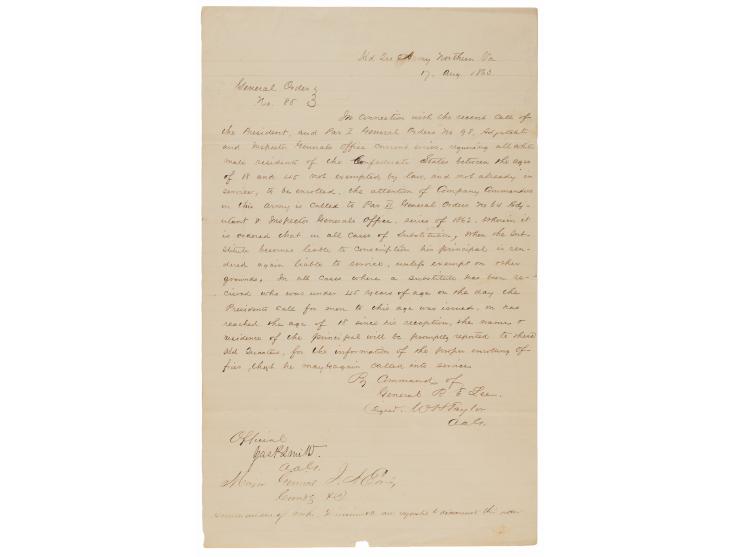 Hd Qrs Army Northern Va
17 Aug 1863
General Orders
No. 85
In connection with the recent call of
the President, and Par I General Orders No 98, Adjutant
and Inspector Generals Office current series, requiring all white
male residents of the Confederate States between the ages
of 18 and 45 not exempted by law, and not already in
service, to be enrolled, the attention of Company Commanders
in this Army is called to Par II General Orders No 64 Adj-
utant & Inspector Generals Office, series of 1862. Wherein it
is ordered that in all cases of Substitution, When the Sub-
stitute becomes liable to conscription his principal is ren-
dered again liable to service, unless exempt on other
grounds. In all cases where a substitute has been re-
ceived who was under 45 years of age on the day the
Presidents call for men to this age was issued, or has
reached the age of 18 since his reception, the names &
residence of the principal will be promptly reported to these
Hd Quarters, for the information of the proper enrolling of-
ficer, that he may be again called into service
By Command of
General R. E. Lee.
Signed. W H Taylor
AAG.
Official
Jas P Smith.
AAG
Major General J. A.
Comdg